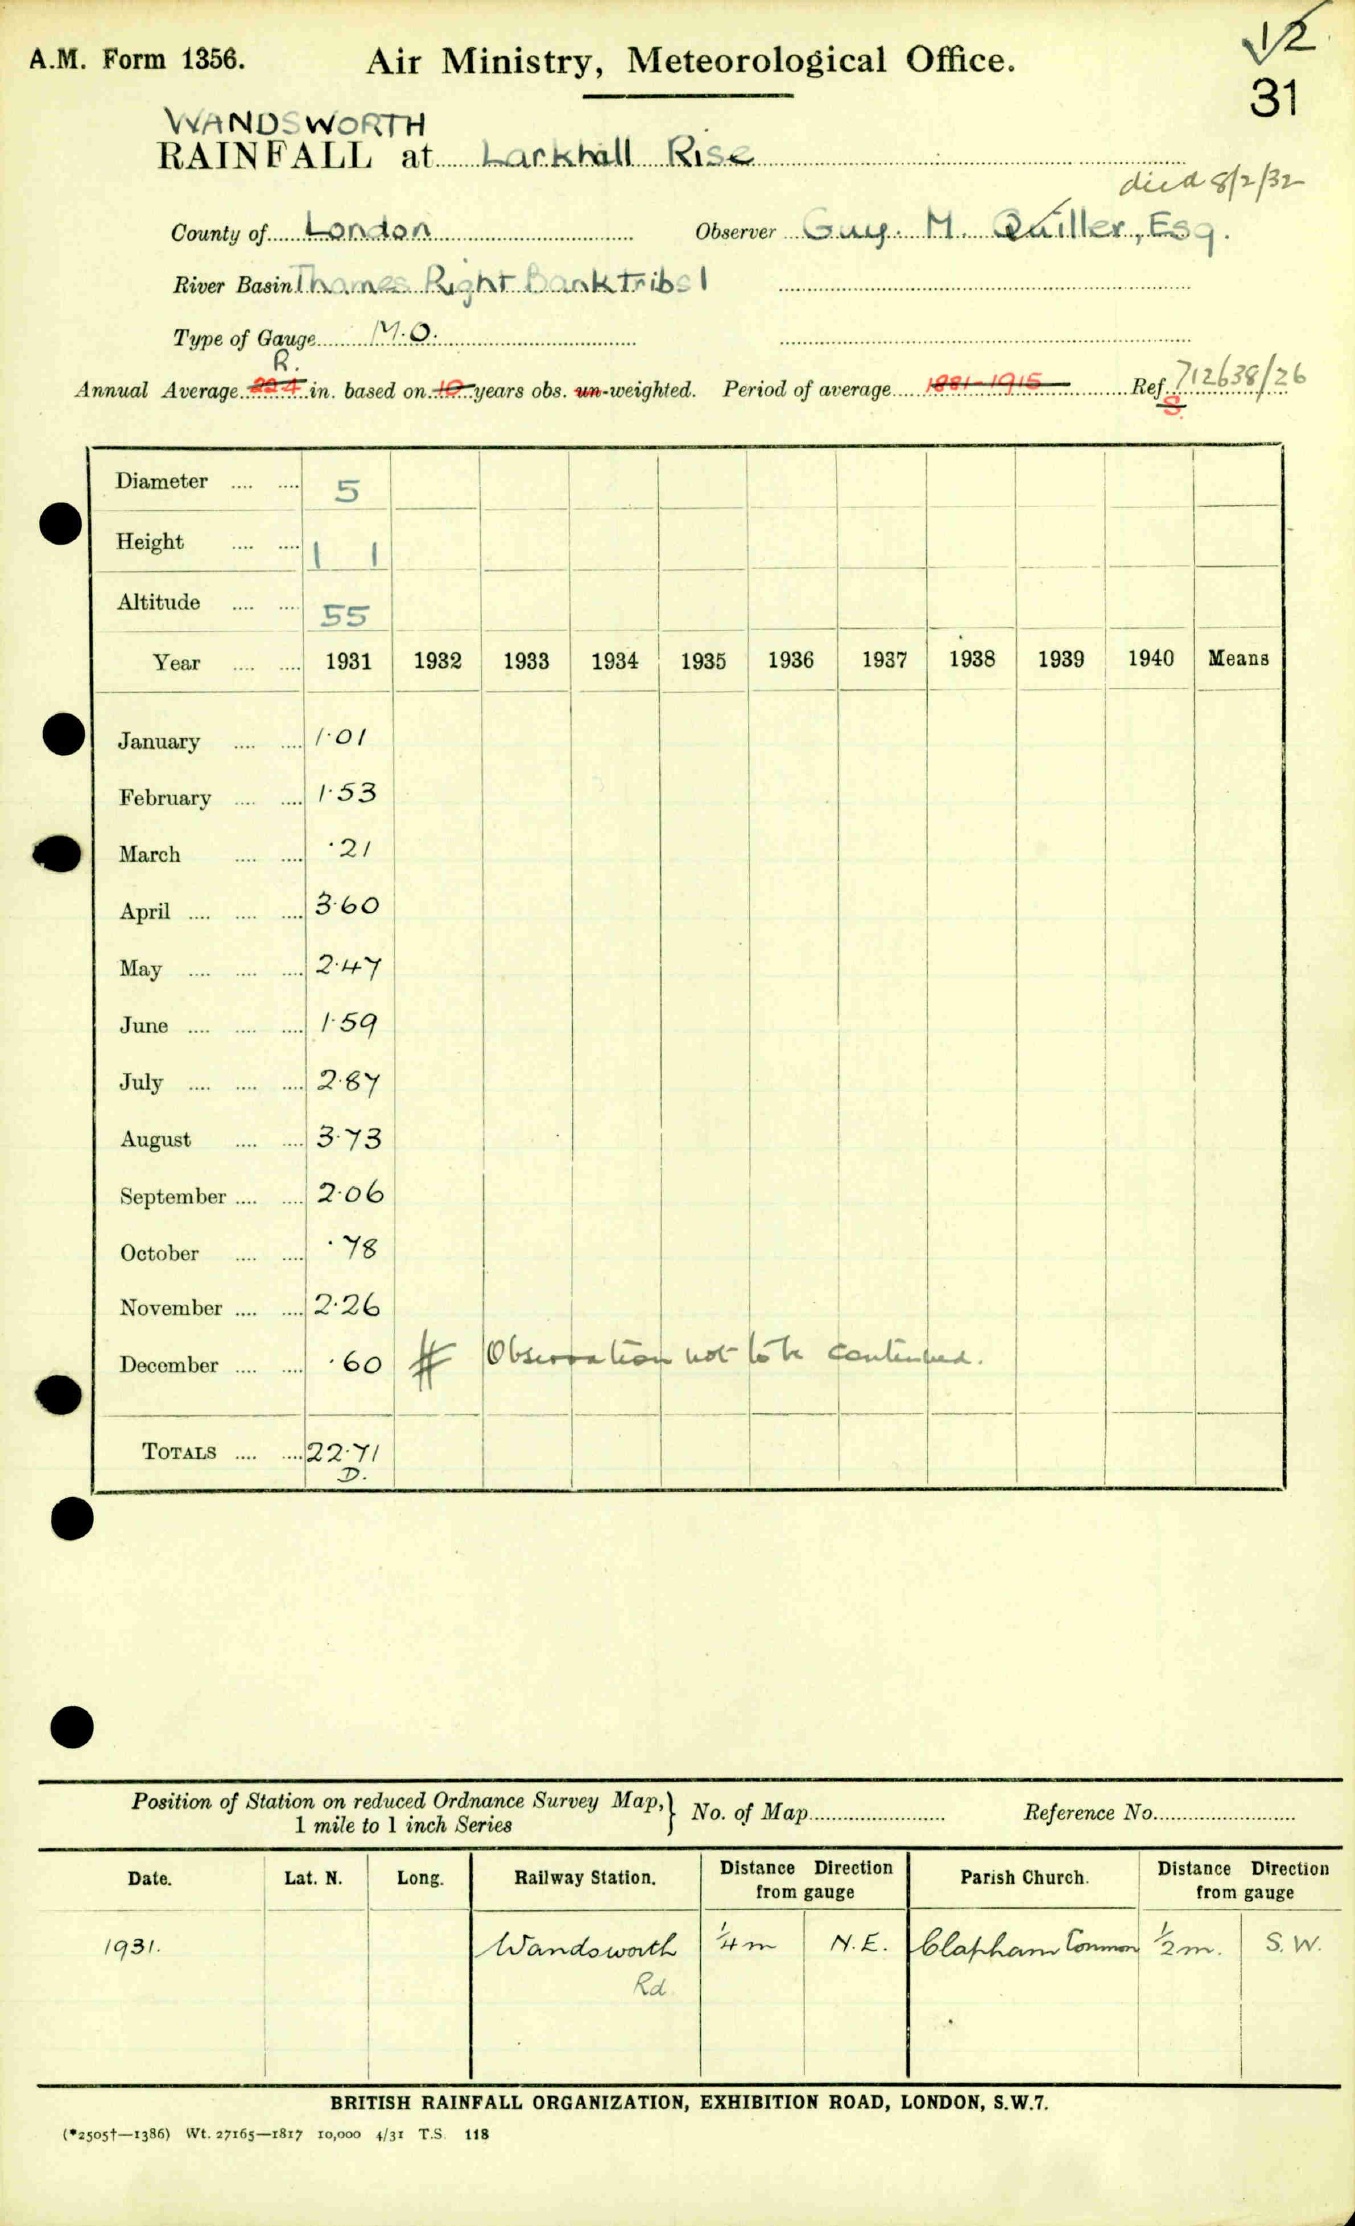 12
A.M. Form 1356. Air Ministry, Meteorological Office.
31
WANDSWORTH
RAINFALL at Larkhall Rise
died 8/2/32
County of London Observer Guy. M. Quiller, Esq.
River Basin Thames Right Bank Tribs 1
Type of Gauge M.O.
R.
Annual Average 22.4 in. based on 10 years obs. un-weighted. Period of average 1881-1915 Ref. 712638/26
S.
Diameter .... .... 5
Height .... .... 1 1
Altitude .... .... 55
Year .... .... 1931 1932 1933 1934 1935 1936 1937 1938 1939 1940 Means
January .... .... 1.01
February .... .... 1.53
March .... .... .21
April .... .... .... 3.60
May .... .... .... 2.47
June .... .... .... 1.59
July .... .... .... 2.87
August .... .... 3.73
September .... .... 2.06
October .... .... .78
November .... .... 2.26
December .... .... .60 # Observation not to be continued.
TOTALS .... .... 22.71
D.
Position of Station on reduced Ordnance Survey Map, } No. of Map Reference No.
1 mile to 1 inch Series
Date. Lat. N. Long. Railway Station. Distance Direction from gauge Parish Church. Distance Direction from gauge
1931. Wandsworth 1/4 m N.E. Clapham Common 1/2 m. S.W.
Rd
BRITISH RAINFALL ORGANIZATION, EXHIBITION ROAD, LONDON, S.W.7.
(*2505†—1386) Wt. 27165—1817 10,000 4/31 T.S. 118